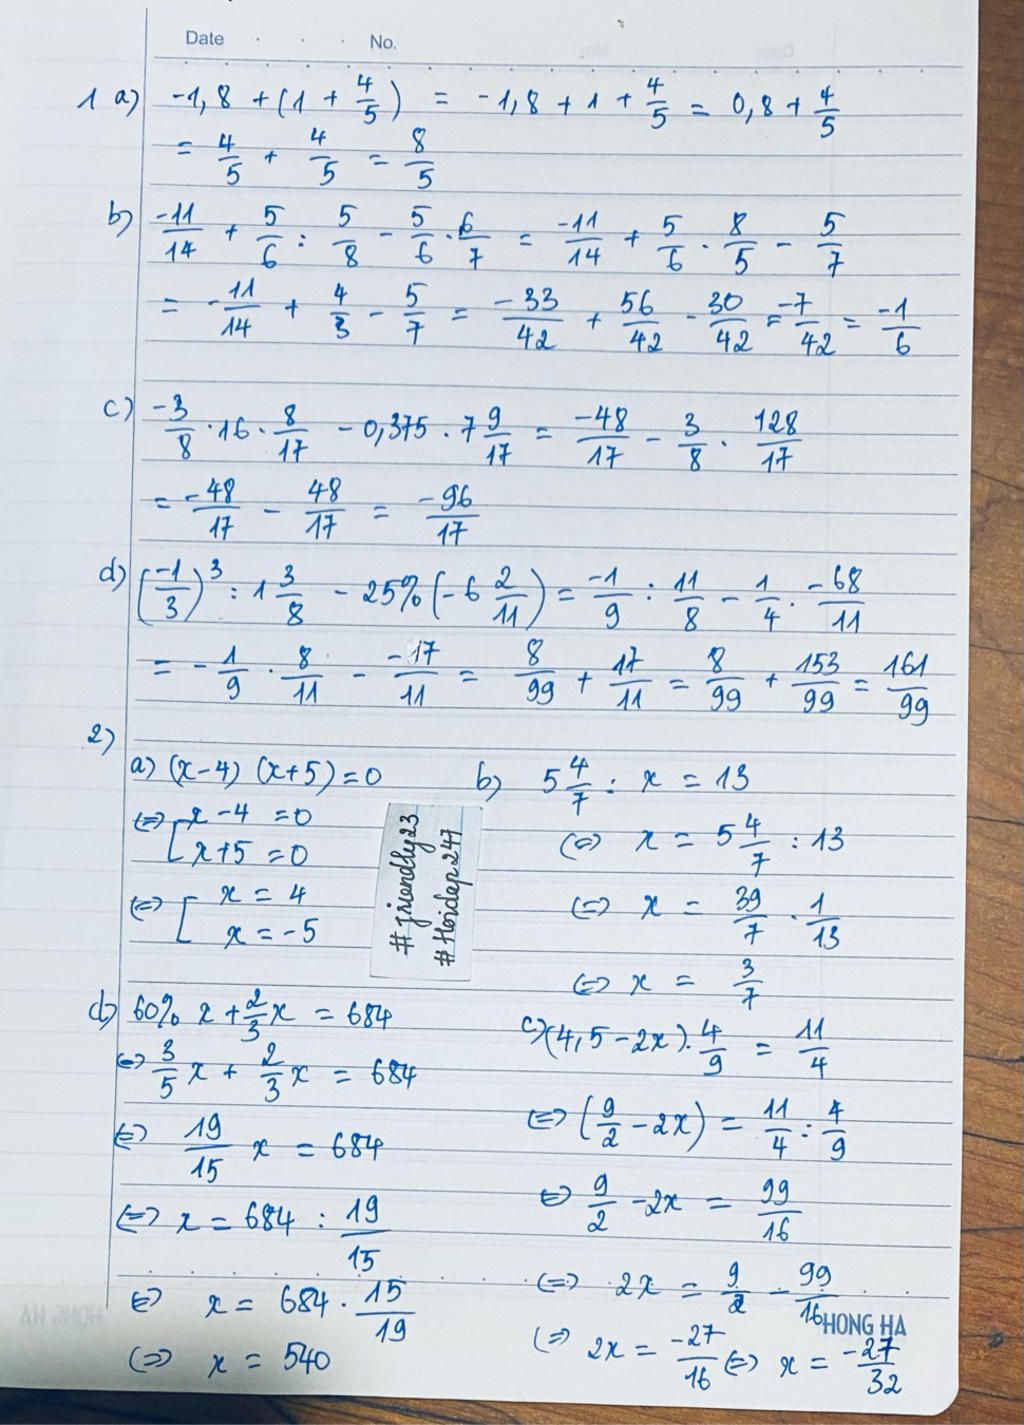 Date No.
1 a) -1,8 + (1 + 4/5) = -1,8 + 1 + 4/5 = 0,8 + 4/5
= 4/5 + 4/5 = 8/5
b) -11/14 + 5/6 : 5/8 - 5/6 . 6/7 = -11/14 + 5/6 . 8/5 - 5/7
= -11/14 + 4/3 - 5/7 = -33/42 + 56/42 - 30/42 = -7/42 = -1/6
c) -3/8 . 16 . 8/17 - 0,375 . 7 9/17 = -48/17 - 3/8 . 128/17
= -48/17 - 48/17 = -96/17
d) (-1/3)^3 : 1 3/8 - 25% (-6 2/11) = -1/9 : 11/8 - 1/4 . -68/11
= -1/9 . 8/11 - -17/11 = 8/99 + 17/11 = 8/99 + 153/99 = 161/99
2)
a) (x-4) (x+5) = 0
⇔ [ x - 4 = 0
x + 5 = 0
⇔ [ x = 4
x = -5
b) 5 4/7 : x = 13
⇔ x = 5 4/7 : 13
⇔ x = 39/7 . 1/13
⇔ x = 3/7
#friendly23
#Hoidap247
d) 60% x + 2/3 x = 684
⇔ 3/5 x + 2/3 x = 684
⇔ 19/15 x = 684
⇔ x = 684 : 19/15
⇔ x = 684 . 15/19
⇔ x = 540
c) (4,5 - 2x) . 4/9 = 11/4
⇔ (9/2 - 2x) = 11/4 : 4/9
⇔ 9/2 - 2x = 99/16
⇔ 2x = 9/2 - 99/16
⇔ 2x = -27/16 ⇔ x = -27/32
HONG HA